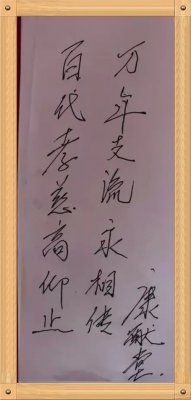 百代孝慈高仰止
万年支流永相传
康堂